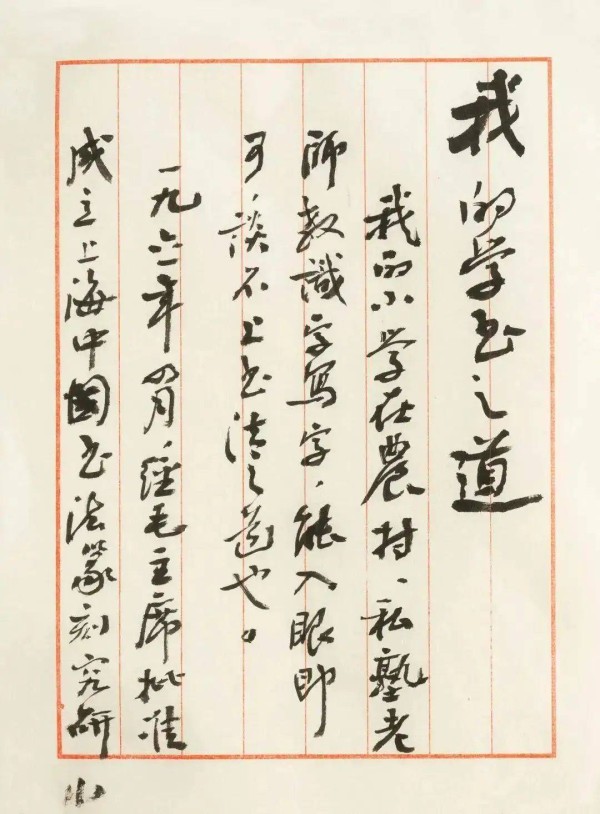 我的学书之道
我的小学在農村、私塾老
师教識字寫字，能入眼即
可，談不上书法之道也。
一九六一年四月，經毛主席批准
成立上海中國书法篆刻究研